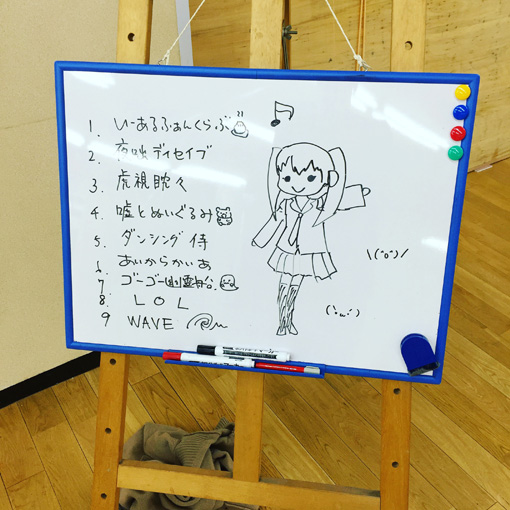 1. いーあるふぁんくらぶ
2. 夜咄ディセイブ
3. 虎視眈々
4. 嘘とぬいぐるみ
5. ダンシング侍
6. あいからかいあ
7 ゴーゴー幽霊船
8. LOL
9 WAVE
\(°o°)/
(´・ω・`)